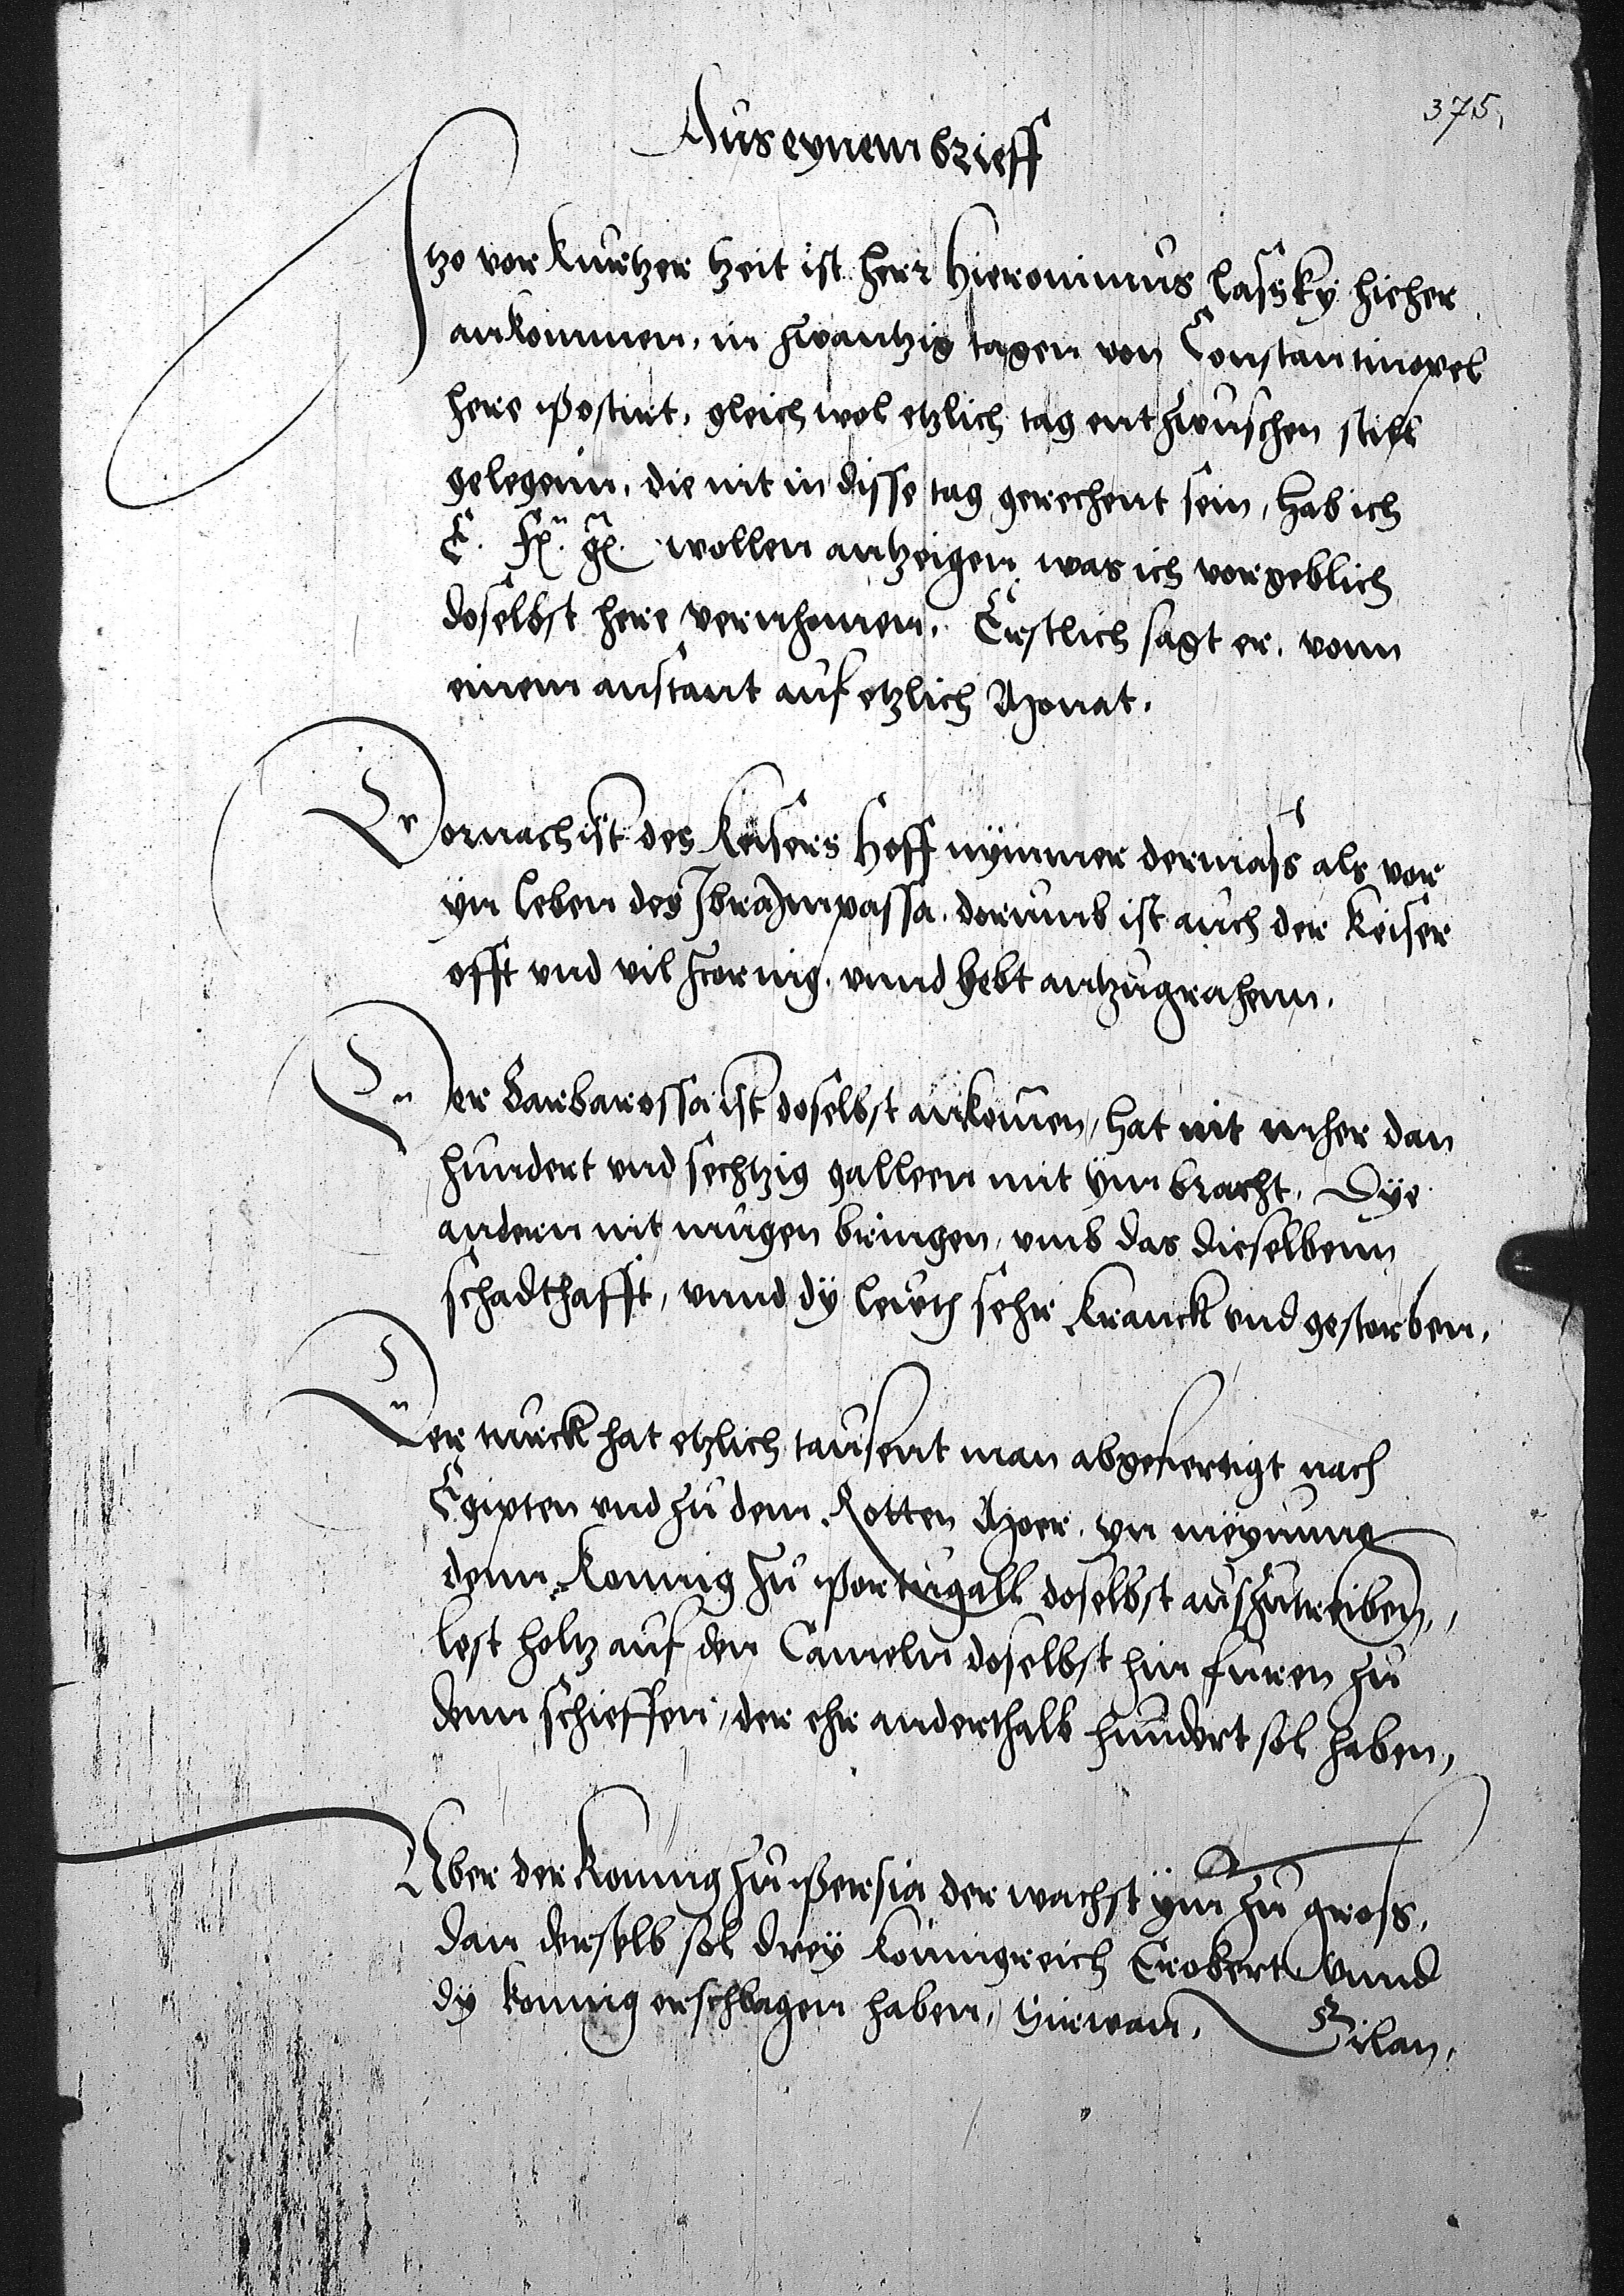 375.
Aus eynem brieff
Itzo vor kurtzer tzeit ist herr Hieronimus Lassky hieher
ankommen, in zwantzig tagen von Constantinopel
here postirt, gleichwol etzlich tag entzwuschen still
gelegenn, die nit in disse tag gerechent sein, hab ich
E. f. g. wollen antzeigen was ich vorgeblich
doselbst here vernhomen. Erstlich sagt er, vonn
einem anstant auf etzlich Monat.
Dornach ist des Keisers Hoff nymmer dermass als vor
ym leben des Ibraimpassa. dorumb ist auch der Keiser
offt vnd vil zornig, vnnd hebt antzugrahenn.
Der Barbarossa ist doselbst ankomen, hat nit mher dan
hundert vnd sechtzig galleen mit ym bracht, Dye
andern nit mugen bringen, vmb das dieselbenn
schadthafft, vnnd dy lewth sehr kranck vnd gestorben.
Der turck hat etzlich tausent man abgefertigt nach
Egipten vnd zu dem Rotten Moer, yn meynung
denn Konnig zu Portugall doselbst auszutreiben,
lest holtz auf den Cameln doselbst hin furen zu
denn schieffen, der ehr anderthalb hundert sol haben,
Aber der Konnig zu Persia der wachst ym zu gross,
dan derselb sol drey konnigreich Erobert vnnd
dy konnig erschlagen haben, Hirwan, Gilan,